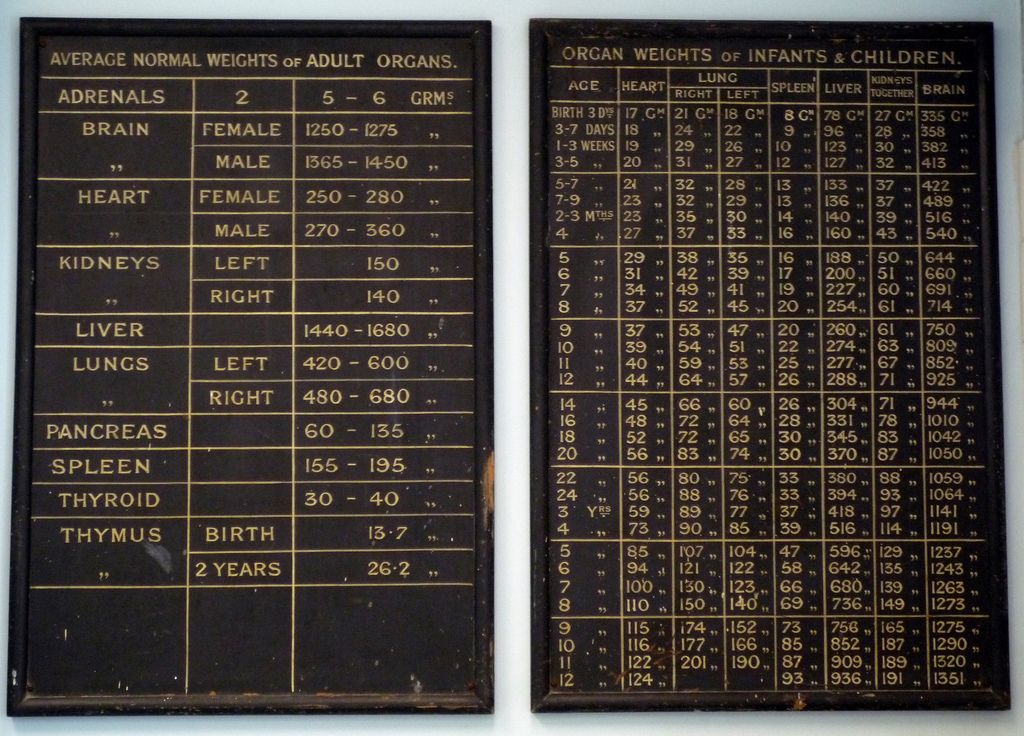 AVERAGE NORMAL WEIGHTS OF ADULT ORGANS.
ADRENALS 2 5 - 6 GRMS
BRAIN FEMALE 1250 - 1275 „
„ MALE 1365 - 1450 „
HEART FEMALE 250 - 280 „
„ MALE 270 - 360 „
KIDNEYS LEFT 150 „
„ RIGHT 140 „
LIVER 1440 - 1680 „
LUNGS LEFT 420 - 600 „
„ RIGHT 480 - 680 „
PANCREAS 60 - 135 „
SPLEEN 155 - 195 „
THYROID 30 - 40 „
THYMUS BIRTH 13·7 „
„ 2 YEARS 26·2 „
ORGAN WEIGHTS OF INFANTS & CHILDREN.
AGE HEART LUNG SPLEEN LIVER KIDNEYS TOGETHER BRAIN
RIGHT LEFT
BIRTH 3 DYS 17 GM 21 GM 18 GM 8 GM 78 GM 27 GM 335 GM
3-7 DAYS 18 „ 24 „ 22 „ 9 „ 96 „ 28 „ 358 „
1-3 WEEKS 19 „ 29 „ 26 „ 10 „ 123 „ 30 „ 382 „
3-5 „ 20 „ 31 „ 27 „ 12 „ 127 „ 32 „ 413 „
5-7 „ 21 „ 32 „ 28 „ 13 „ 133 „ 37 „ 422 „
7-9 „ 23 „ 32 „ 29 „ 13 „ 136 „ 37 „ 489 „
2-3 MTHS 23 „ 35 „ 30 „ 14 „ 140 „ 39 „ 516 „
4 „ 27 „ 37 „ 33 „ 16 „ 160 „ 43 „ 540 „
5 „ 29 „ 38 „ 35 „ 16 „ 188 „ 50 „ 644 „
6 „ 31 „ 42 „ 39 „ 17 „ 200 „ 51 „ 660 „
7 „ 34 „ 49 „ 41 „ 19 „ 227 „ 60 „ 691 „
8 „ 37 „ 52 „ 45 „ 20 „ 254 „ 61 „ 714 „
9 „ 37 „ 53 „ 47 „ 20 „ 260 „ 61 „ 750 „
10 „ 39 „ 54 „ 51 „ 22 „ 274 „ 63 „ 809 „
11 „ 40 „ 59 „ 53 „ 25 „ 277 „ 67 „ 852 „
12 „ 44 „ 64 „ 57 „ 26 „ 288 „ 71 „ 925 „
14 „ 45 „ 66 „ 60 „ 26 „ 304 „ 71 „ 944 „
16 „ 48 „ 72 „ 64 „ 28 „ 331 „ 78 „ 1010 „
18 „ 52 „ 72 „ 65 „ 30 „ 345 „ 83 „ 1042 „
20 „ 56 „ 83 „ 74 „ 30 „ 370 „ 87 „ 1050 „
22 „ 56 „ 80 „ 75 „ 33 „ 380 „ 88 „ 1059 „
24 „ 56 „ 88 „ 76 „ 33 „ 394 „ 93 „ 1064 „
3 YRS 59 „ 89 „ 77 „ 37 „ 418 „ 97 „ 1141 „
4 „ 73 „ 90 „ 85 „ 39 „ 516 „ 114 „ 1191 „
5 „ 85 „ 107 „ 104 „ 47 „ 596 „ 129 „ 1237 „
6 „ 94 „ 121 „ 122 „ 58 „ 642 „ 135 „ 1243 „
7 „ 100 „ 130 „ 123 „ 66 „ 680 „ 139 „ 1263 „
8 „ 110 „ 150 „ 140 „ 69 „ 736 „ 149 „ 1273 „
9 „ 115 „ 174 „ 152 „ 73 „ 756 „ 165 „ 1275 „
10 „ 116 „ 177 „ 166 „ 85 „ 852 „ 187 „ 1290 „
11 „ 122 „ 201 „ 190 „ 87 „ 909 „ 189 „ 1320 „
12 „ 124 „ 93 „ 936 „ 191 „ 1351 „